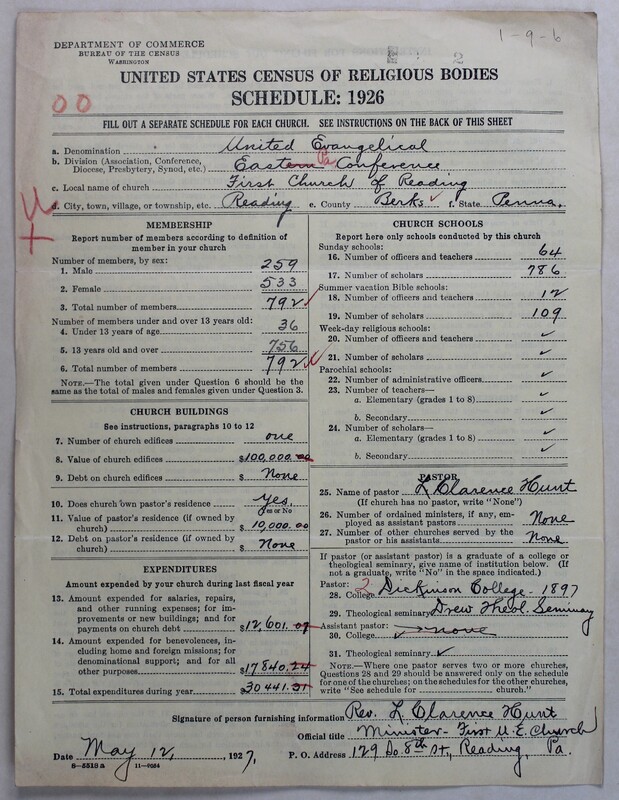 1-9-6
2
DEPARTMENT OF COMMERCE
BUREAU OF THE CENSUS
WASHINGTON
UNITED STATES CENSUS OF RELIGIOUS BODIES
SCHEDULE: 1926
00
FILL OUT A SEPARATE SCHEDULE FOR EACH CHURCH. SEE INSTRUCTIONS ON THE BACK OF THIS SHEET
a. Denomination United Evangelical
b. Division (Association, Conference, Diocese, Presbytery, Synod, etc.) Eastern Pa Conference
c. Local name of church First Church of Reading
d. City, town, village, or township, etc. Reading e. County Berks ✓ f. State Penna.
MEMBERSHIP
Report number of members according to definition of
member in your church
Number of members, by sex:
1. Male 259
2. Female 533
3. Total number of members 792 ✓
Number of members under and over 13 years old:
4. Under 13 years of age 36
5. 13 years old and over 756
6. Total number of members 792 ✓
NOTE.—The total given under Question 6 should be the
same as the total of males and females given under Question 3.
CHURCH BUILDINGS
See instructions, paragraphs 10 to 12
7. Number of church edifices one
8. Value of church edifices $100,000.00
9. Debt on church edifices $ None
10. Does church own pastor's residence? Yes.
Yes or No
11. Value of pastor's residence (if owned by
church) $10,000.00
12. Debt on pastor's residence (if owned by
church) $ None
EXPENDITURES
Amount expended by your church during last fiscal year
13. Amount expended for salaries, repairs,
and other running expenses; for im-
provements or new buildings; and for
payments on church debt $12,601.07
14. Amount expended for benevolences,
including home and foreign missions; for
denominational support; and for all
other purposes $17840.24
15. Total expenditures during year $30441.31
CHURCH SCHOOLS
Report here only schools conducted by this church
Sunday schools:
16. Number of officers and teachers 64
17. Number of scholars 786
Summer vacation Bible schools:
18. Number of officers and teachers 12
19. Number of scholars 109
Week-day religious schools:
20. Number of officers and teachers ✓
21. Number of scholars ✓
Parochial schools:
22. Number of administrative officers ✓
23. Number of teachers—
a. Elementary (grades 1 to 8) ✓
b. Secondary ✓
24. Number of scholars—
a. Elementary (grades 1 to 8) ✓
b. Secondary ✓
PASTOR
25. Name of pastor L Clarence Hunt
(If church has no pastor, write "None")
26. Number of ordained ministers, if any, em-
ployed as assistant pastors None
27. Number of other churches served by the
pastor or his assistants None.
If pastor (or assistant pastor) is a graduate of a college or
theological seminary, give name of institution below. (If
not a graduate, write "No" in the space indicated.)
Pastor: 2
28. College Dickinson College - 1897
29. Theological seminary Drew Theol. Seminary
Assistant pastor:
30. College ✓ none
31. Theological seminary ✓
NOTE.—Where one pastor serves two or more churches,
Questions 28 and 29 should be answered only on the schedule
for one of the churches; on the schedules for the other churches,
write "See schedule for church."
Signature of person furnishing information Rev. L Clarence Hunt
Official title Minister - First U. E. Church
Date May 12, 1927, P. O. Address 129 So. 8th St, Reading, Pa.
8-5518 a 11-7054